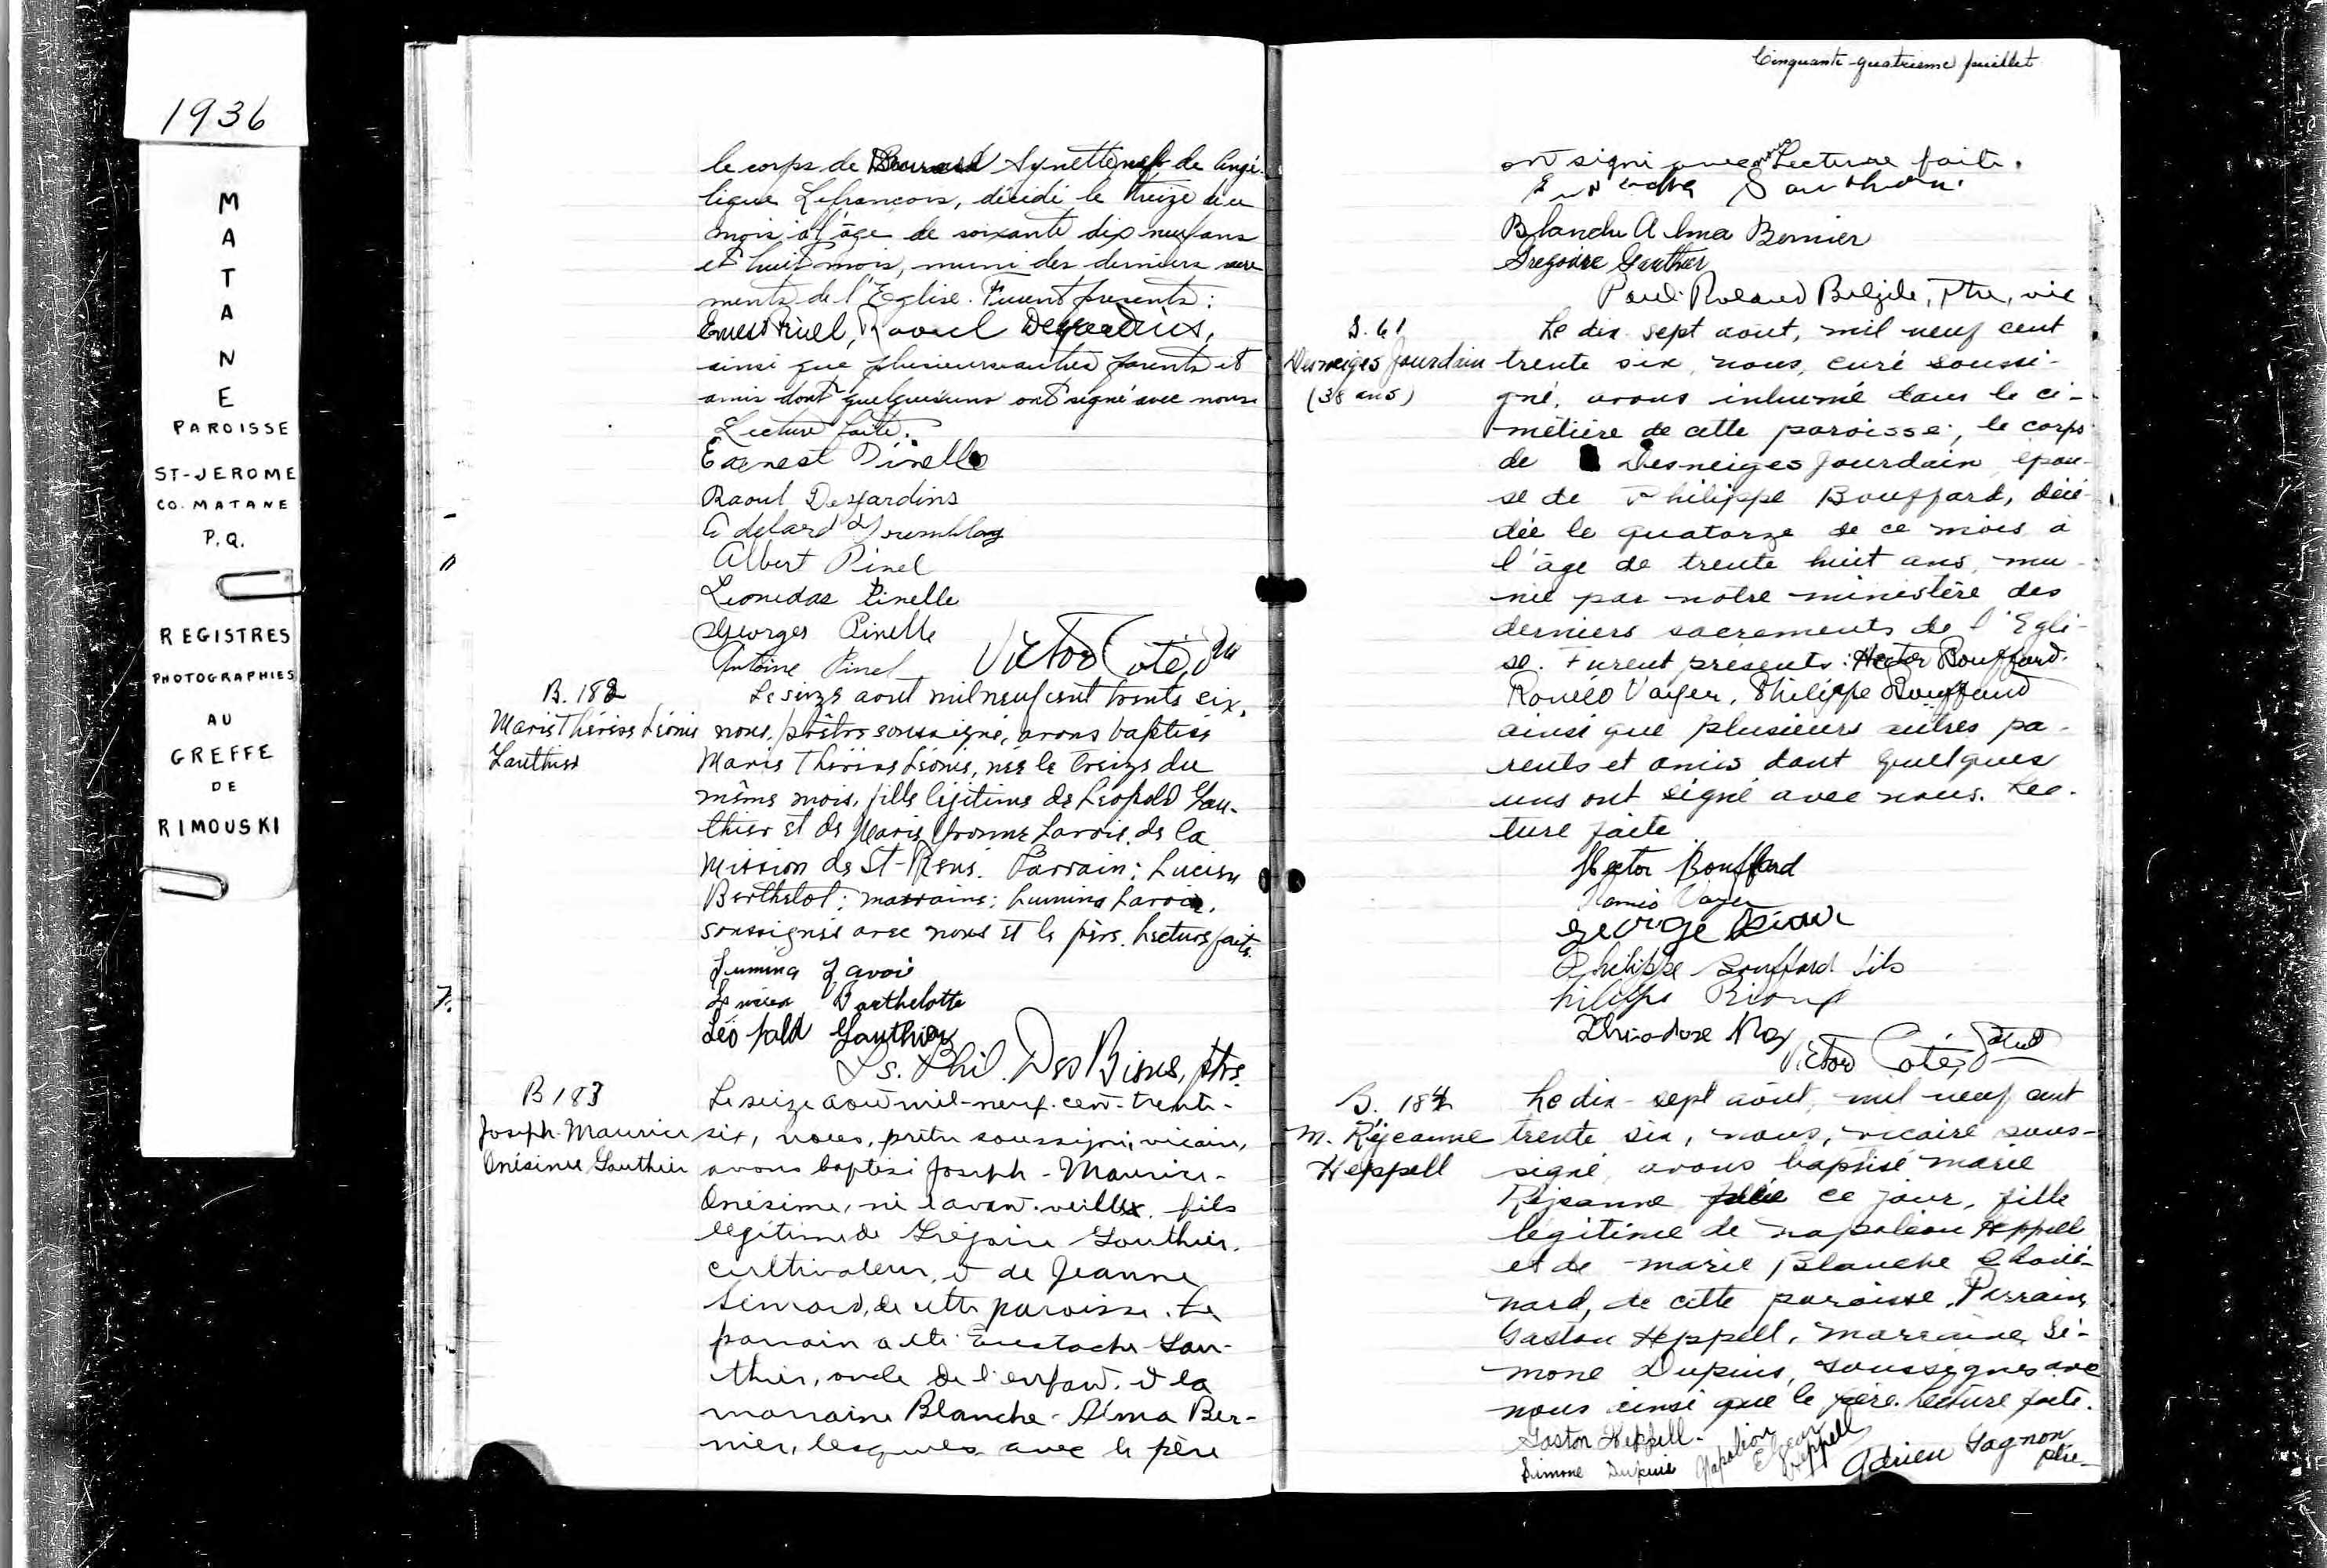 1936
M
A
T
A
N
E
PAROISSE
ST-JEROME
CO. MATANE
P.Q.
REGISTRES
PHOTOGRAPHIES
AU
GREFFE
DE
RIMOUSKI
le corps de Synette de Angé-
lique Lefrancois, décédé le treize du
mois à l'âge de soixante dix neuf ans
et huit mois, muni des derniers sacre
ments de l'Eglise. Furent présents:
Ernest Pinel, Raoul Desjardins,
ainsi que plusieurs autres parents et
amis dont quelques uns ont signé avec nous.
Lecture faite.
Earnest Pinelle
Raoul Desjardins
Adelard Tremblay
Albert Pinel
Leonidas Pinelle
Georges Pinelle
Antoine Pinel Victor Coté, Ptre
B. 182
Marie Thérèse Léonie
Gauthier
Le seize aout mil neuf cent trente six,
nous, prêtre soussigné, avons baptisé
Marie Thérèse Léonie, née le treize du
même mois, fille légitime de Léopold Gau-
thier et de Marie Yvonne Lavoie, de la
Mission de St-René. Parrain: Lucien
Berthelot; marraine: Lumina Lavoie,
soussignés avec nous et le père. Lecture faite.
Lumina Lavoie
Lucien Barthelotte
Léopold Gauthier
Ls. Phil. DesBiens, ptre.
B 183
Joseph-Maurice
Onésime Gauthier
Le seize août mil-neuf-cent-trente-
six, nous, prêtre soussigné, vicaire,
avons baptisé Joseph-Maurice-
Onésime, né l'avant-veille, fils
légitime de Grégoire Gauthier,
cultivateur, et de Jeanne
Simard, de cette paroisse. Le
parrain a été Eustache Gau-
thier, oncle de l'enfant, et la
marraine Blanche-Alma Ber-
nier, lesquels avec le père
Cinquante-quatrième feuillet
ont signé avec nous Lecture faite.
Eustache Gauthier
Blanche Alma Bernier
Gregoire Gauthier
Paul-Roland Belzile, Ptre, vic
S. 61
Desneiges Jourdain
(38 ans)
Le dix-sept août, mil neuf cent
trente six, nous, curé soussi-
gné, avons inhumé dans le ci-
metière de cette paroisse, le corps
de Desneiges Jourdain, épou-
se de Philippe Bouffard, décé-
dée le quatorze de ce mois à
l'âge de trente huit ans, mu-
nie par notre ministère des
derniers sacrements de l'Egli-
se. Furent présents: Hector Bouffard.
Roméo Vayer, Philippe Bouffard
ainsi que plusieurs autres pa-
rents et amis dont quelques
uns ont signé avec nous. Lec-
ture faite
Hector Bouffard
Roméo Vayer
George
Philippe Bouffard fils
Philippe Rioux
Théodore Roy
Victor Coté, Ptre
B. 184
M. Réjeanne
Heppell
Le dix-sept août, mil neuf cent
trente six, nous, vicaire sous-
signé, avons baptisé Marie
Réjeanne née ce jour, fille
légitime de Napoléon Heppell
et de Marie Blanche Choui-
nard, de cette paroisse. Parrain,
Gaston Heppell, marraine Si-
mone Dupuis, soussignés avec
nous ainsi que le père. Lecture faite.
Gaston Heppell.
Simone Dupuis Napoléon Elzéar Heppell
Adrien Gagnon ptre